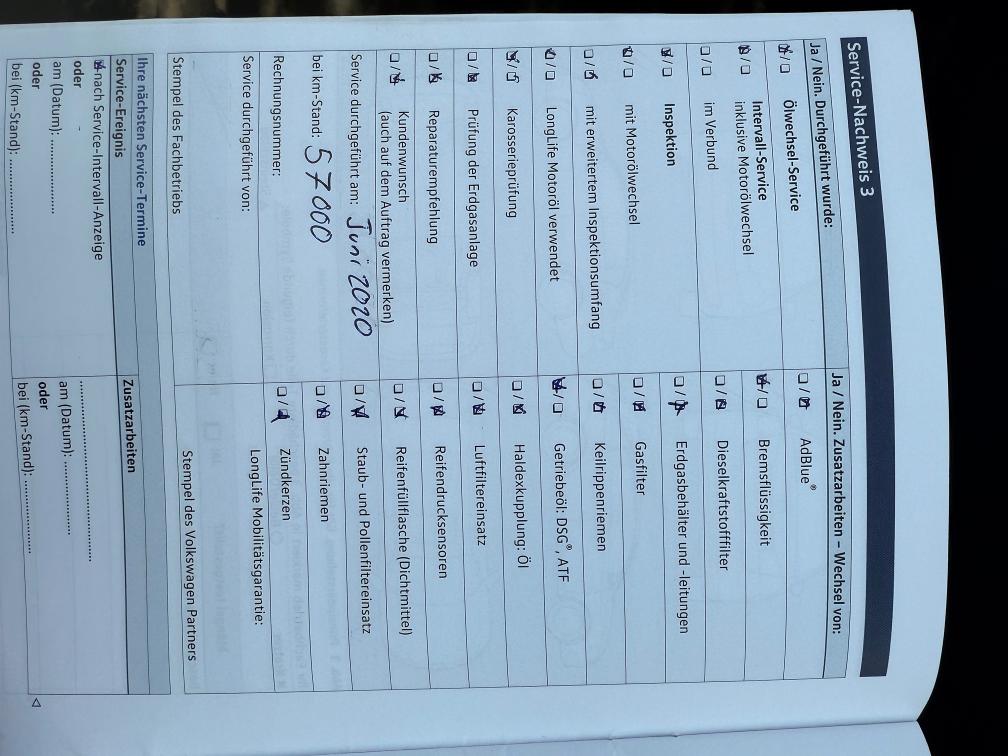 Service-Nachweis 3
Ja / Nein. Durchgeführt wurde:
Ölwechsel-Service
Intervall-Service
inklusive Motorölwechsel
im Verbund
Inspektion
mit Motorölwechsel
mit erweitertem Inspektionsumfang
LongLife Motoröl verwendet
Karosserieprüfung
Prüfung der Erdgasanlage
Reparaturempfehlung
Kundenwunsch
(auch auf dem Auftrag vermerken)
Service durchgeführt am: Juni 2020
bei km-Stand: 57000
Rechnungsnummer:
Service durchgeführt von:
Stempel des Fachbetriebs
Ja / Nein. Zusatzarbeiten – Wechsel von:
AdBlue®
Bremsflüssigkeit
Dieselkraftstofffilter
Erdgasbehälter und -leitungen
Gasfilter
Keilrippenriemen
Getriebeöl: DSG®, ATF
Haldexkupplung: Öl
Luftfiltereinsatz
Reifendrucksensoren
Reifenfüllflasche (Dichtmittel)
Staub- und Pollenfiltereinsatz
Zahnriemen
Zündkerzen
LongLife Mobilitätsgarantie:
Stempel des Volkswagen Partners
Ihre nächsten Service-Termine
Service-Ereignis
nach Service-Intervall-Anzeige
oder
am (Datum): ....................
oder
bei (km-Stand): ....................
Zusatzarbeiten
........................................
am (Datum): ....................
oder
bei (km-Stand): ....................